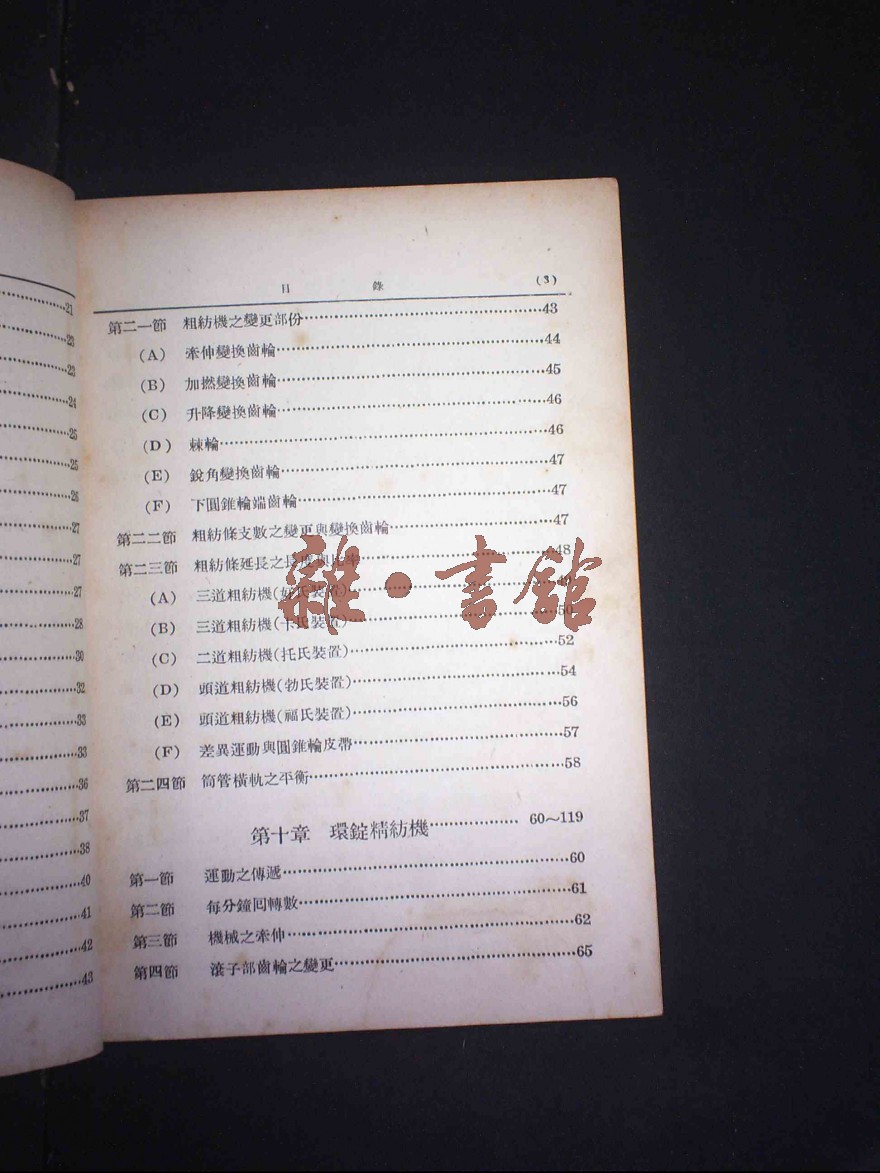 21
23
23
24
25
25
26
27
27
27
28
30
32
33
33
36
37
38
40
41
42
43
目 錄 (3)
第二一節 粗紡機之變更部份……43
(A) 牽伸變換齒輪……44
(B) 加撚變換齒輪……45
(C) 升降變換齒輪……46
(D) 棘輪……46
(E) 銳角變換齒輪……47
(F) 下圓錐輪端齒輪……47
第二二節 粗紡條支數之變更與變換齒輪……47
第二三節 粗紡條延長之長度與比率……48
(A) 三道粗紡機(好氏裝置)……49
(B) 三道粗紡機(卡氏裝置)……50
(C) 二道粗紡機(托氏裝置)……52
(D) 頭道粗紡機(勃氏裝置)……54
(E) 頭道粗紡機(福氏裝置)……56
(F) 差異運動與圓錐輪皮帶……57
第二四節 筒管橫軌之平衡……58
第十章 環錠精紡機……60~119
第一節 運動之傳遞……60
第二節 每分鐘回轉數……61
第三節 機械之牽伸……62
第四節 滾子部齒輪之變更……65
雜·書館